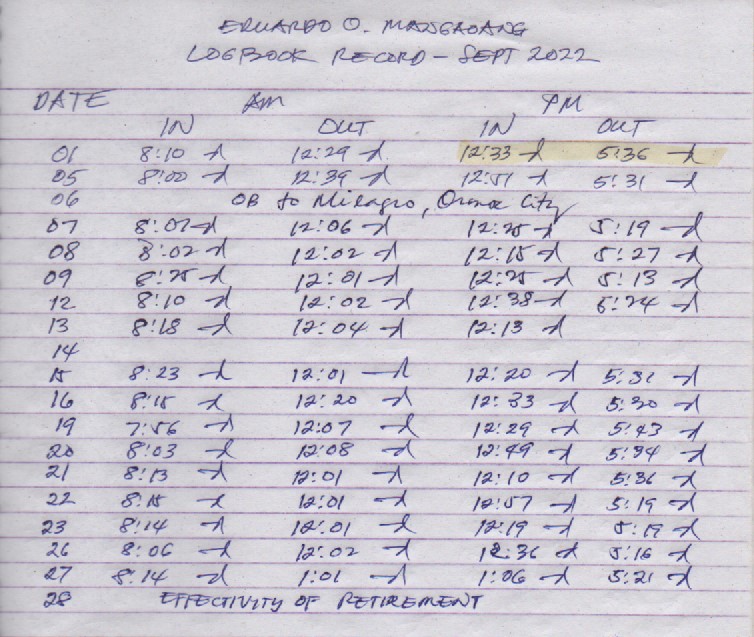 EDUARDO O. MANGAOANG
LOGBOOK RECORD - SEPT 2022
DATE AM PM
IN OUT IN OUT
01 8:10 12:29 12:33 5:36
05 8:00 12:39 12:51 5:31
06 OB to Milagro, Ormoc City
07 8:07 12:06 12:25 5:19
08 8:02 12:02 12:15 5:27
09 8:25 12:01 12:25 5:13
12 8:10 12:02 12:38 5:24
13 8:18 12:04 12:13
14
15 8:23 12:01 12:20 5:31
16 8:15 12:20 12:33 5:30
19 7:56 12:07 12:29 5:43
20 8:03 12:08 12:49 5:34
21 8:13 12:01 12:10 5:36
22 8:15 12:01 12:57 5:19
23 8:14 12:01 12:19 5:19
26 8:06 12:02 12:36 5:16
27 8:14 1:01 1:06 5:21
28 EFFECTIVITY OF RETIREMENT